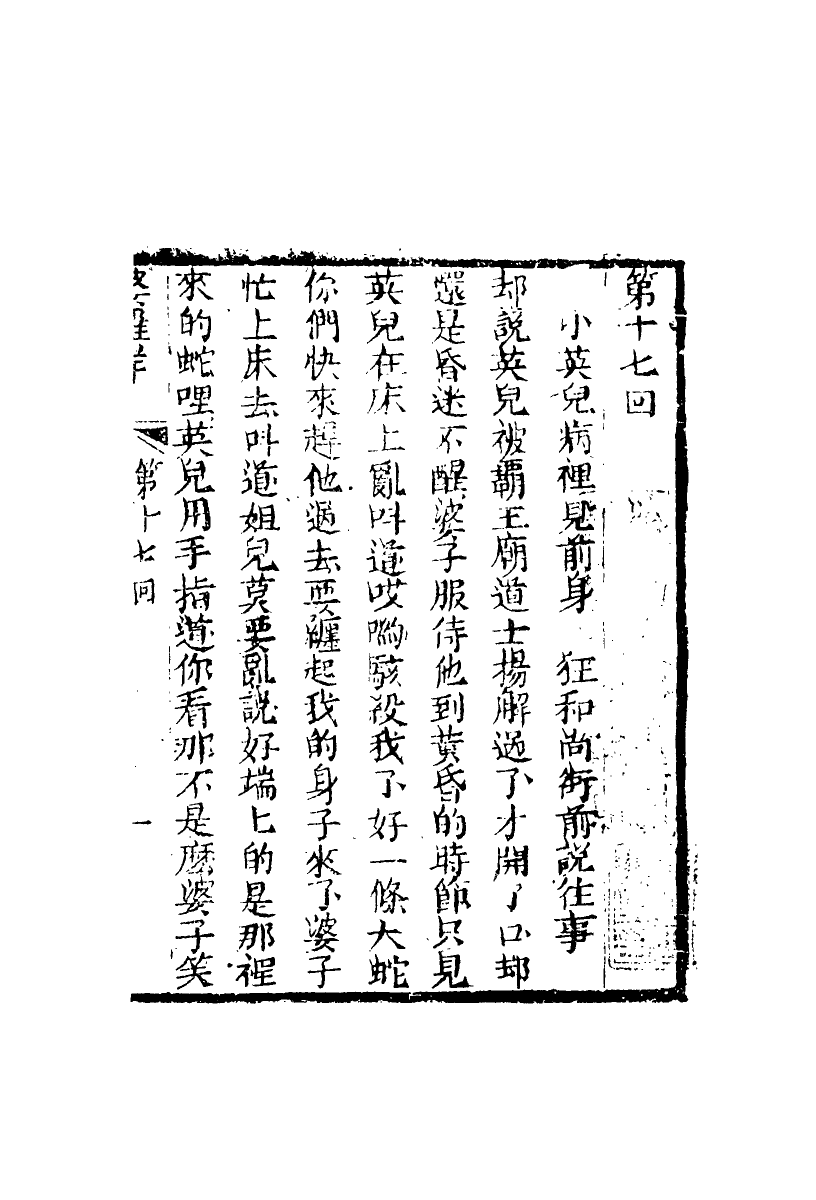 第十七回
小英兒病裡見前身　狂和尚街前說往事
却說英兒被霸王廟道士揚解過了才開了口却
還是昏迷不醒婆子服侍他到黄昏的時節只見
英兒在床上亂呌道哎喲駭殺我了好一條大蛇
你們快來趕他過去要纏起我的身子來了婆子
忙上床去呌道姐兒莫要乱說好端匕的是那裡
來的蛇哩英兒用手指道你看那不是麽婆子笑
第十七回　一